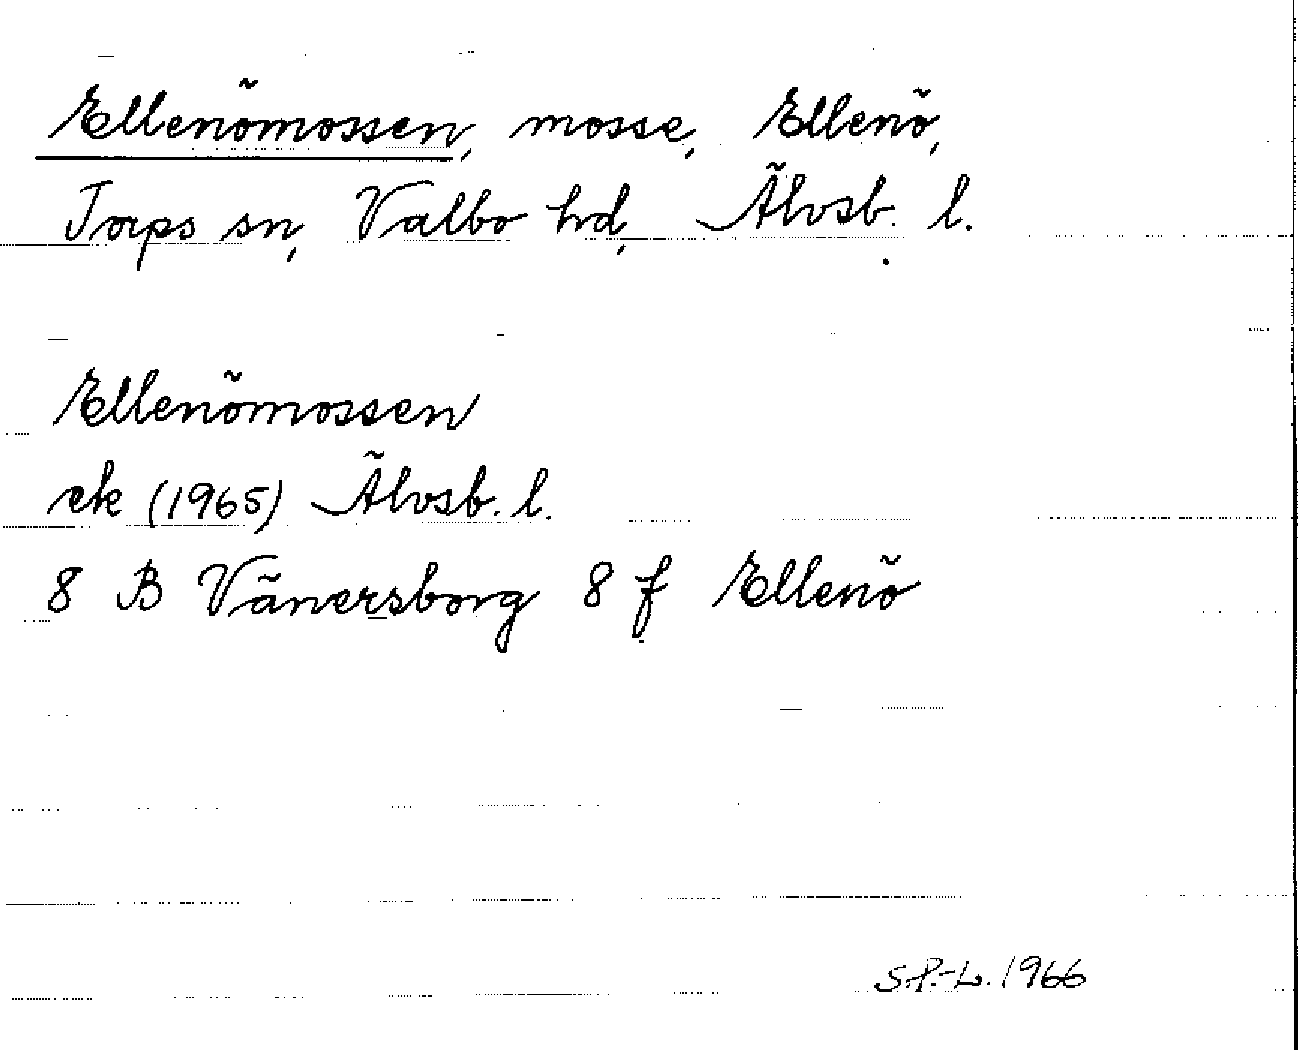 Ellenömossen, mosse, Ellenö,
Torps sn, Valbo hd, Älvsb. l.
Ellenömossen
ek (1965) Älvsb. l.
8 B Vänersborg 8 f Ellenö
S.P.-L. 1966